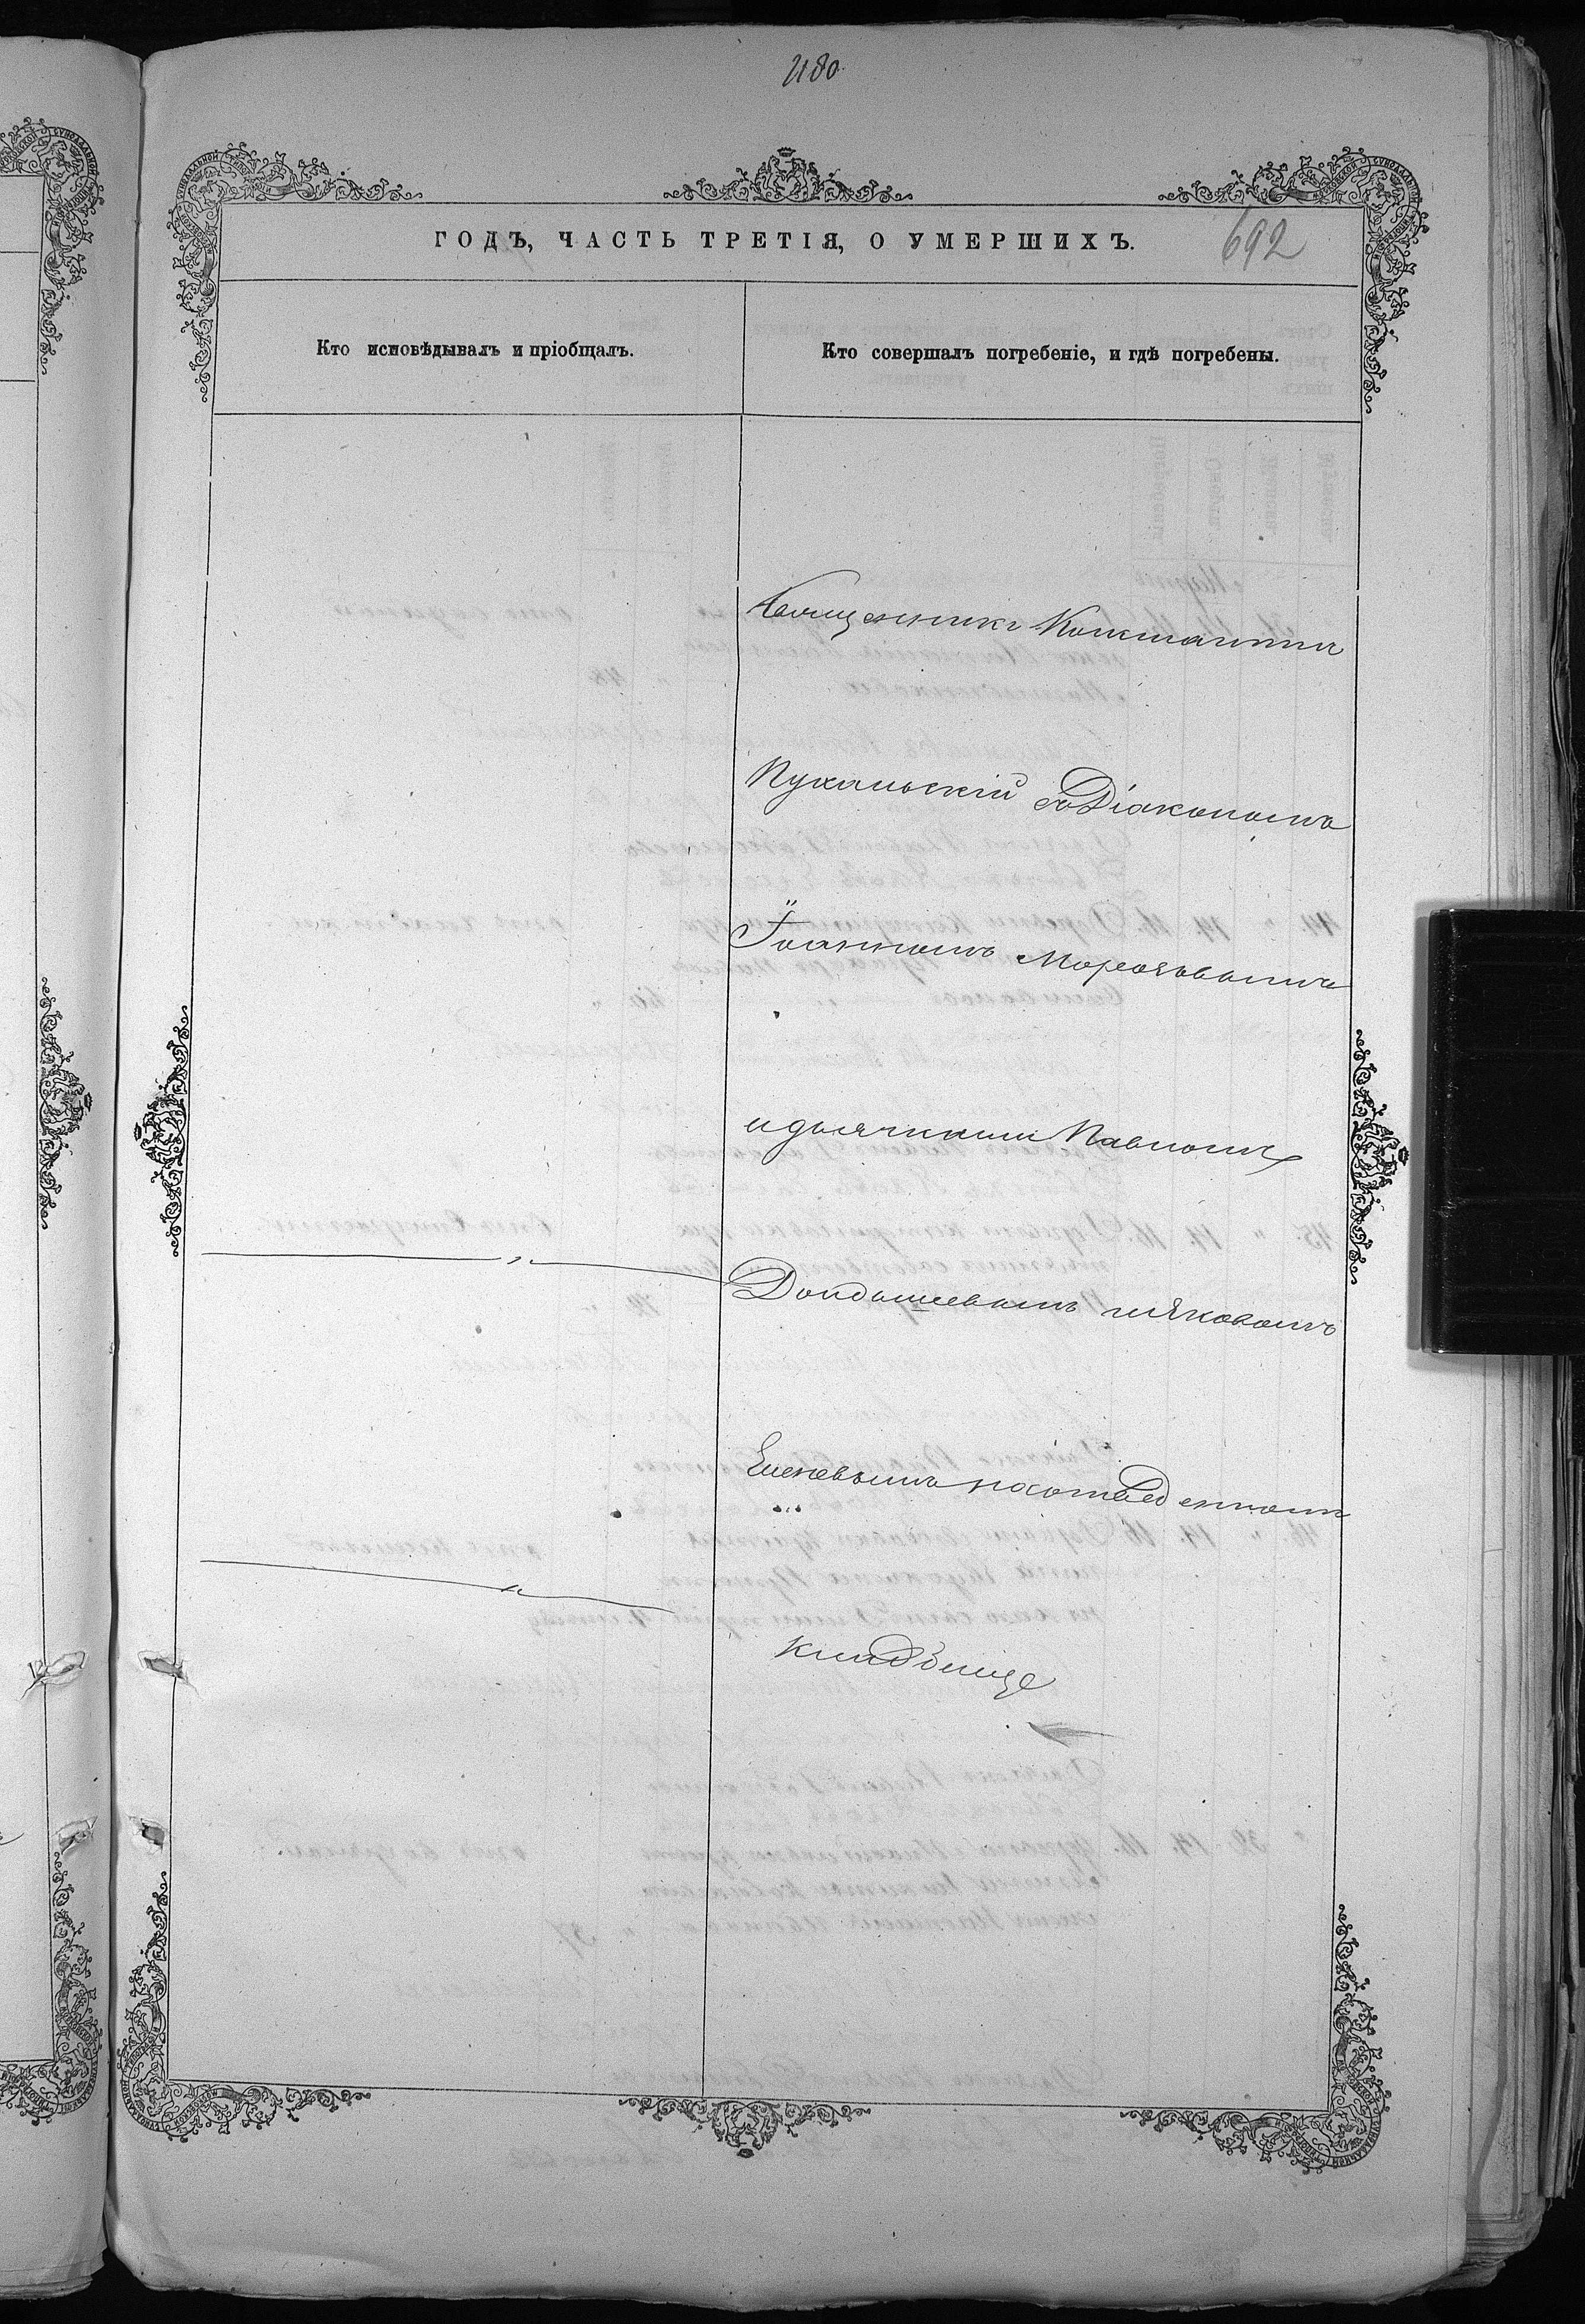 2180
692
ГОДЪ, ЧАСТЬ ТРЕТІЯ, О УМЕРШИХЪ.
Кто исповѣдывалъ и пріобщалъ.
Кто совершалъ погребеніе, и гдѣ погребены.
Священникъ Константинъ
Пухальскій съ Діакономъ
Іоанномъ Морозовымъ
и дьячками Павломъ
Яковомъ
на отведенномъ
кладбище